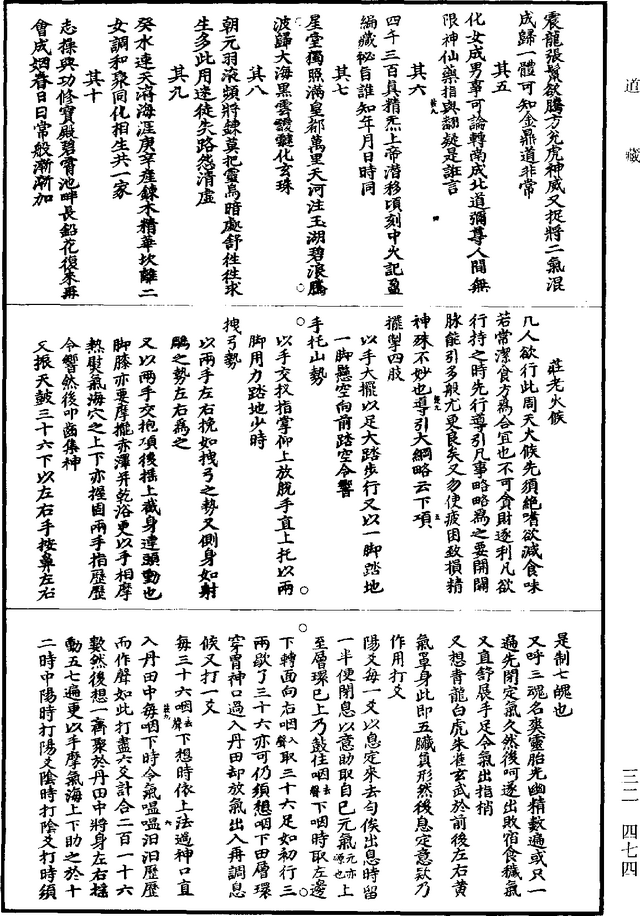 道藏
震龍張鬣欲騰方兌虎神威又捉將二氣混
成歸一體可知金鼎道非常
其五
化女成男事可論轉南成北道彌尊人間無
限神仙藥指與翻疑是誑言
其六
四千三百真精炁上帝潛移頃刻中火記盈
編藏秘旨誰知年月日時同
其七
星堂獨照滿皇都萬里天河注玉湖碧浪騰
波歸大海黑雲靉靆化玄珠
其八
朝元羽滾頻將隸莫把靈烏暗處舒往往求
生多此用迷徒失路怨清虛
其九
癸水連天溶海涯庚辛產鍊木精華坎離二
女調和聚同化相生共一家
其十
志操與功修寶殿碧霄池畔長鉛花復來再
會成姻眷日日常般漸漸加
莊老火候
凡人欲行此周天大候先須絕嗜欲減食味
若常潔食方為合宜也不可貪財逐利凡欲
行持之時先行導引凡事略略為之要開關
脉能引多般尤更良矣又勿使疲困致損精
神殊不妙也導引大綱略云下項
擺掣四肢
以手大擺以足大踏步行又以一脚踏地
一脚懸空向前踏空令響
手托山勢
以手交扠指掌仰上放脫手直上托以兩
脚用力踏地少時
拽弓勢
以兩手左右挽如拽弓之勢又側身如射
鵰之勢左右為之
又以兩手交抱項後搖上截身連頭動也
脚膝亦要摩攏赤澤并乾浴更以手相摩
熱熨氣海穴之上下亦握固兩手指歷歷
令響然後叩齒集神
又振天鼓三十六下以左右手按鼻左右
是制七魄也
又呼三魂名爽靈胎光幽精數遍或只一
遍先閉定氣久然後呵遂出敗宿食穢氣
又直舒展手足令氣出指梢
又想青龍白虎朱雀玄武於前後左右黃
氣罩身此即五臟真形然後息定意欵乃
作用打爻
陽爻每一爻以息定來去勻俟出息時留
一半便閉息以意助取自己元氣元亦上源也
至層環已上乃鼓往咽去聲下咽時取左邊
下轉面向右咽入聲取三十六足如初行三
兩歇了三十六亦可仍須想咽下田層環
穿胃神口過入丹田却放氣出入再調息
候又打一爻
每三十六咽去聲下想時依上法過神口直
入丹田中每咽下時令氣嗢嗢汩汩歷歷
而作聲如此打盡六爻計合二百一十六
數然後想一齊聚於丹田中將身左右搖
動五七遍更以手摩氣海上下助之於十
二時中陽時打陽爻陰時打陰爻打時須
三二 四七四